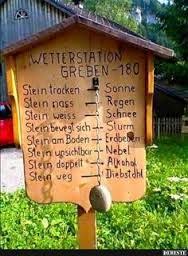 WETTERSTATION
GREBEN - 180
Stein trocken → Sonne
Stein nass → Regen
Stein weiss → Schnee
Stein bewegt sich → Sturm
Stein am Boden → Erdbeben
Stein unsichtbar → Nebel
Stein doppelt → Alkohol
Stein weg → Diebstahl
DEBESTE